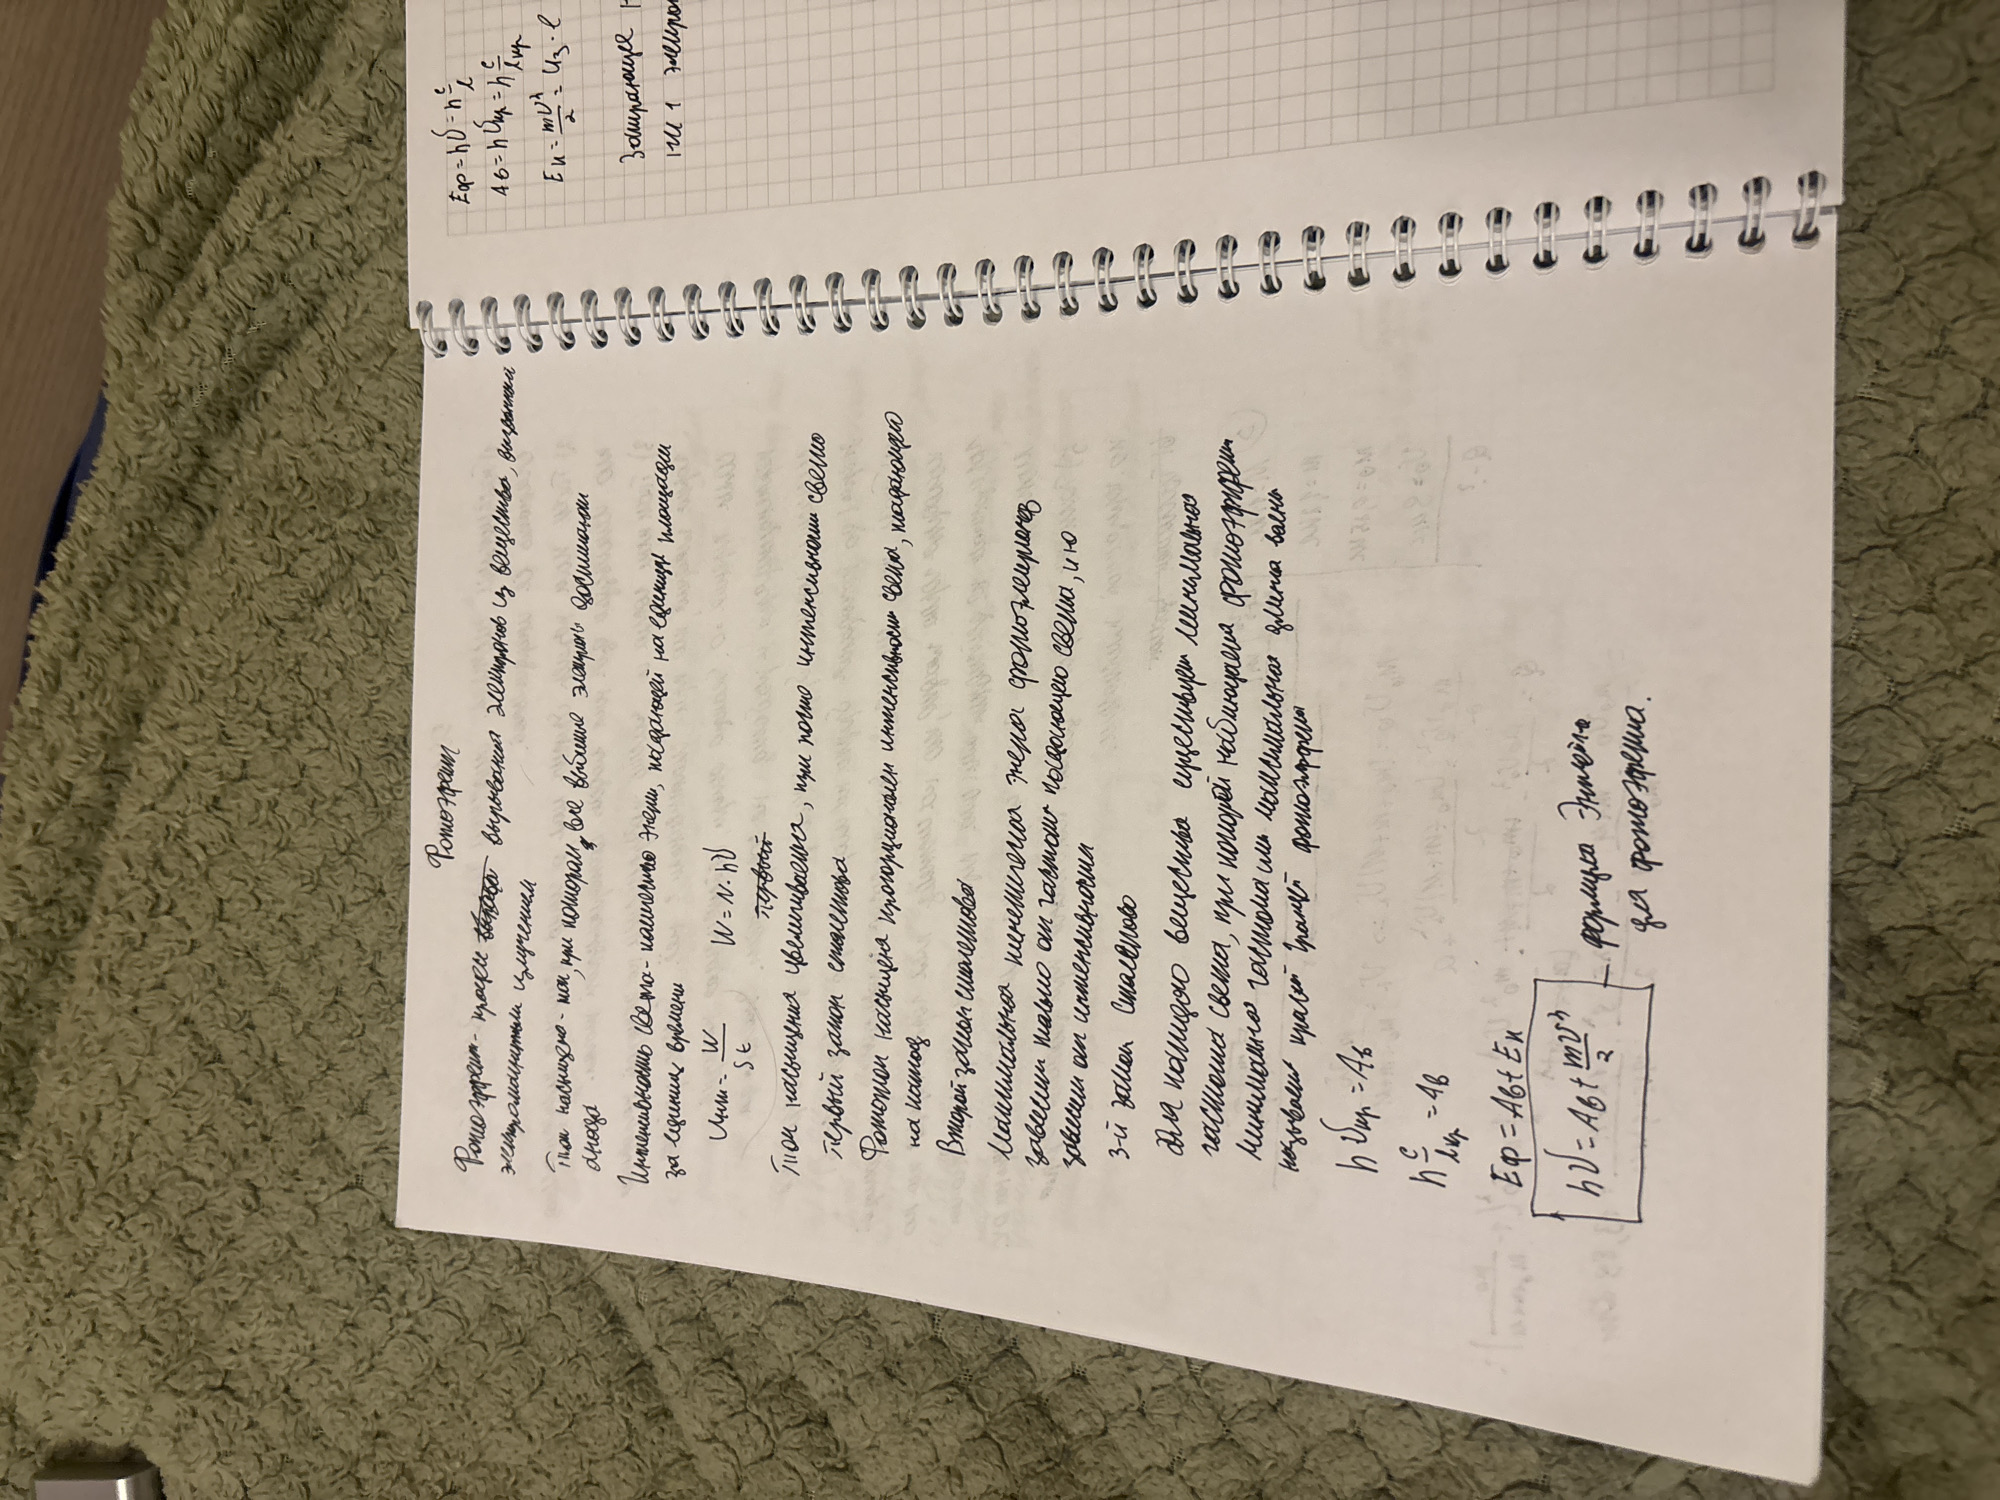 Фотоэффект
Фотоэффект - процесс вырывания электронов из вещества, вызванный
электромагнитным излучением
Ток насыщения - ток, при котором все выбитые электроны достигают
анода
Интенсивность света - количество энергии, падающей на единицу площади
за единицу времени
Инт = W/St W = N·hν
первый
Ток насыщения увеличивается, при интенсивности света
Первый закон столетова
Фототок насыщения пропорционален интенсивности света, падающего
на катод
Второй закон столетова
Максимальная кинетическая энергия фотоэлектронов
зависит только от частоты падающего света, и не
зависит от интенсивности
3-й закон Столетова
Для каждого вещества существует минимальная
частота света, при которой наблюдается фотоэффект
Минимальная частота или максимальная длина волны
называют красной границей фотоэффекта
hνкр = Aв
h c/λкр = Aв
Eф = Aв + Eк
hν = Aв + mV²/2 - формула Энштейна
для фотоэффекта.
Eф = hν = h c/λ
Aв = hνкр = h c/λкр
Eк = mV²/2 = Uз · e
Запирающее